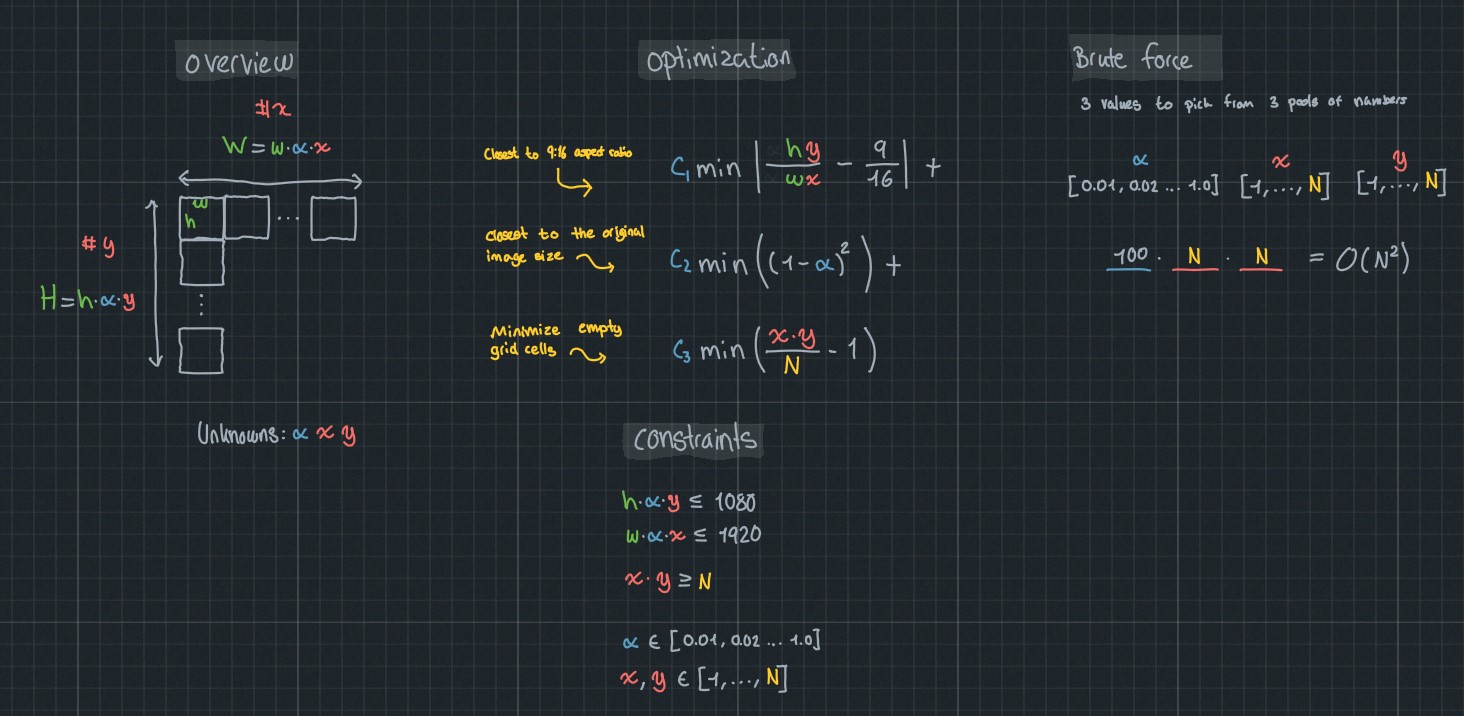 overview
#x
W = w·α·x
w
h
...
# y
H = h·α·y
⋮
Unknowns: α x y
Optimization
Closest to 9:16 aspect ratio
C₁ min | hy / wx - 9 / 16 | +
Closest to the original
image size
C₂ min ((1-α)²) +
Minimize empty
grid cells
C₃ min (x·y / N - 1)
constraints
h·α·y ≤ 1080
w·α·x ≤ 1920
x·y ≥ N
α ∈ [0.01, 0.02 ... 1.0]
x, y ∈ [1, ..., N]
Brute force
3 values to pick from 3 pools of numbers
α x y
[0.01, 0.02 ... 1.0] [1, ..., N] [1, ..., N]
100 · N · N = O(N²)